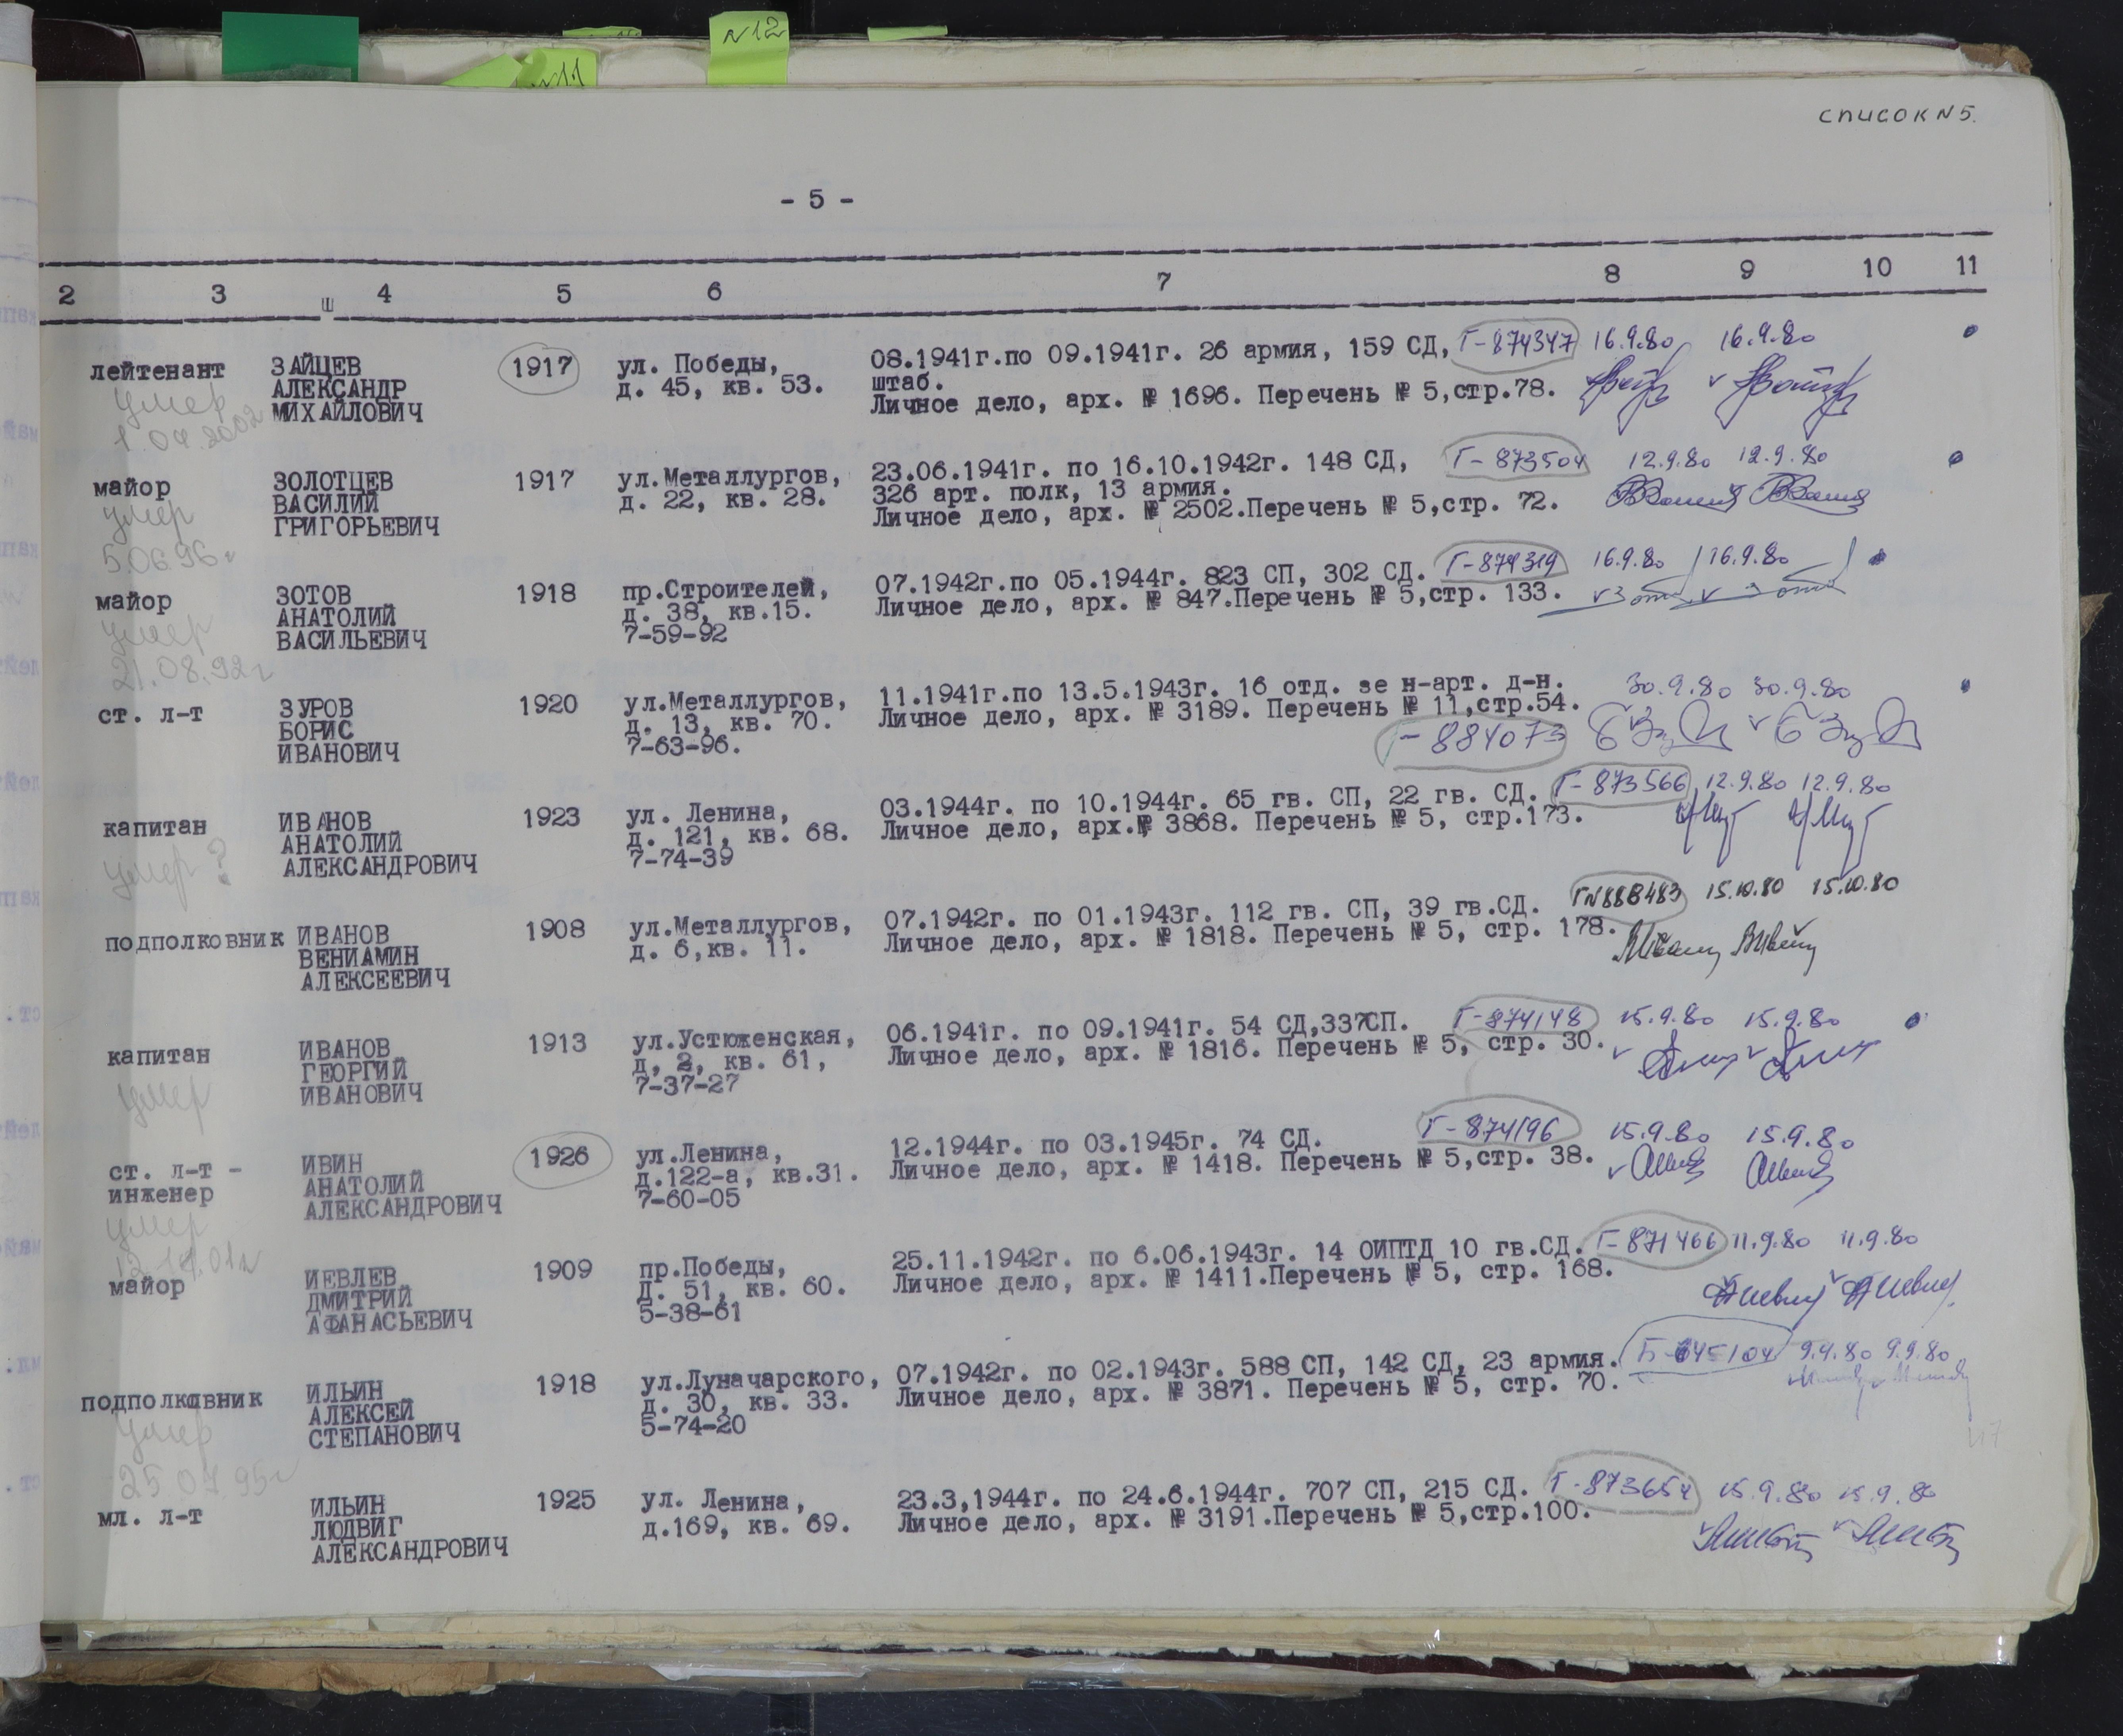 N12
N11
СПИСОК N 5.
- 5 -
2 3 4 5 6 7 8 9 10 11
ш
лейтенант ЗАЙЦЕВ 1917 ул. Победы, 08.1941г.по 09.1941г. 26 армия, 159 СД, Г-874347 16.9.80 16.9.80
АЛЕКСАНДР д. 45, кв. 53. штаб.
умер МИХАЙЛОВИЧ Личное дело, арх. № 1696. Перечень № 5,стр.78.
1.04.2002
майор ЗОЛОТЦЕВ 1917 ул.Металлургов, 23.06.1941г. по 16.10.1942г. 148 СД, Г-873504 12.9.80 12.9.80
ВАСИЛИЙ д. 22, кв. 28. 326 арт. полк, 13 армия.
умер ГРИГОРЬЕВИЧ Личное дело, арх. № 2502.Перечень № 5,стр. 72.
5.06.96г
майор ЗОТОВ 1918 пр.Строителей, 07.1942г.по 05.1944г. 823 СП, 302 СД. Г-874319 16.9.80 16.9.80
АНАТОЛИЙ д. 38, кв.15. Личное дело, арх. № 847.Перечень № 5,стр. 133.
умер ВАСИЛЬЕВИЧ 7-59-92
21.08.92г
ст. л-т ЗУРОВ 1920 ул.Металлургов, 11.1941г.по 13.5.1943г. 16 отд. зе н-арт. д-н. 30.9.80 30.9.80
БОРИС д. 13, кв. 70. Личное дело, арх. № 3189. Перечень № 11,стр.54.
ИВАНОВИЧ 7-63-96. Г-884073
капитан ИВАНОВ 1923 ул. Ленина, 03.1944г. по 10.1944г. 65 гв. СП, 22 гв. СД. Г-873566 12.9.80 12.9.80
АНАТОЛИЙ д. 121, кв. 68. Личное дело, арх.№ 3868. Перечень № 5, стр.173.
умер ? АЛЕКСАНДРОВИЧ 7-74-39
подполковник ИВАНОВ 1908 ул.Металлургов, 07.1942г. по 01.1943г. 112 гв. СП, 39 гв.СД. 15.10.80 15.10.80
ВЕНИАМИН д. 6,кв. 11. Личное дело, арх. № 1818. Перечень № 5, стр. 178.
АЛЕКСЕЕВИЧ
капитан ИВАНОВ 1913 ул.Устюженская, 06.1941г. по 09.1941г. 54 СД,337СП. Г-874148 15.9.80 15.9.80
ГЕОРГИЙ д, 2, кв. 61, Личное дело, арх. № 1816. Перечень № 5, стр. 30.
умер ИВАНОВИЧ 7-37-27
ст. л-т - ИВИН 1926 ул.Ленина, 12.1944г. по 03.1945г. 74 СД. Г-874196 15.9.80 15.9.80
инженер АНАТОЛИЙ д.122-а, кв.31. Личное дело, арх. № 1418. Перечень № 5,стр. 38.
умер АЛЕКСАНДРОВИЧ 7-60-05
майор ИЕВЛЕВ 1909 пр.Победы, 25.11.1942г. по 6.06.1943г. 14 ОИПТД 10 гв.СД. Г-871466 11.9.80 11.9.80
ДМИТРИЙ д. 51, кв. 60. Личное дело, арх. № 1411.Перечень № 5, стр. 168.
АФАНАСЬЕВИЧ 5-38-61
подполковник ИЛЬИН 1918 ул.Луначарского, 07.1942г. по 02.1943г. 588 СП, 142 СД, 23 армия. 9.9.80 9.9.80
АЛЕКСЕЙ д. 30, кв. 33. Личное дело, арх. № 3871. Перечень № 5, стр. 70.
умер СТЕПАНОВИЧ 5-74-20
мл. л-т ИЛЬИН 1925 ул. Ленина, 23.3,1944г. по 24.6.1944г. 707 СП, 215 СД. Г-873654 15.9.80 15.9.80
ЛЮДВИГ д.169, кв. 69. Личное дело, арх. № 3191.Перечень № 5,стр.100.
АЛЕКСАНДРОВИЧ